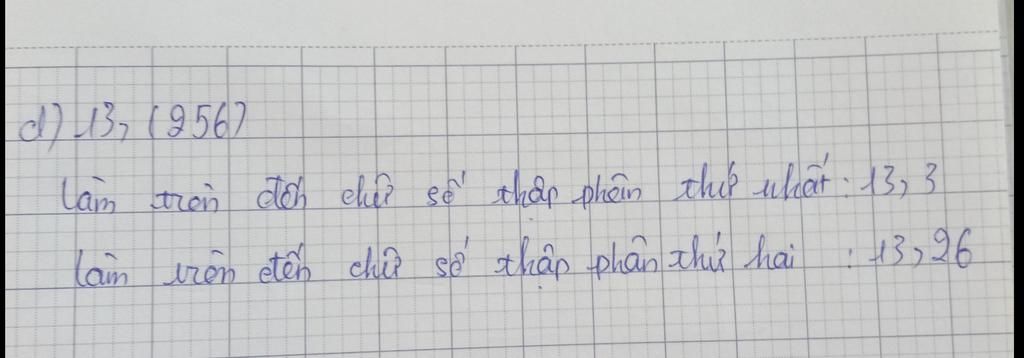 d) 13, (256)
làm tròn đến chữ số thập phân thứ nhất: 13,3
làm tròn đến chữ số thập phân thứ hai : 13,26